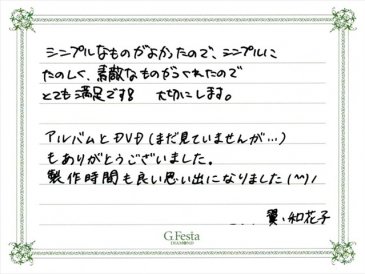 シンプルなものがよかったので、シンプルに
たのしく、素敵なものがつくれたので
とても満足です!! 大切にします。
アルバムとDVD(まだ見ていませんが…)
もありがとうございました。
製作時間も良い思い出になりました(^^)/
翼・和花子
G.Festa
DIAMOND